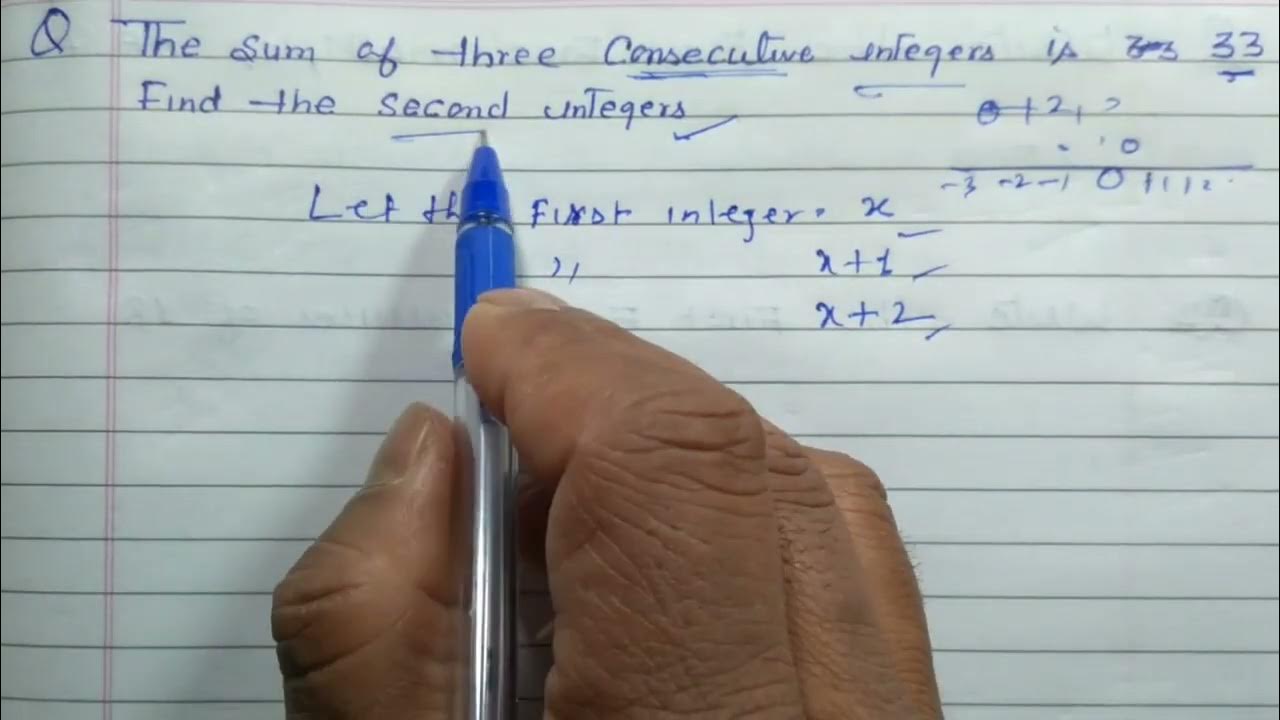 Q The Sum of three Consecutive integers is 33
Find the second integers
0 + 2,
0
-3 -2 -1 0
Let first integer = x
,, x+1
x+2